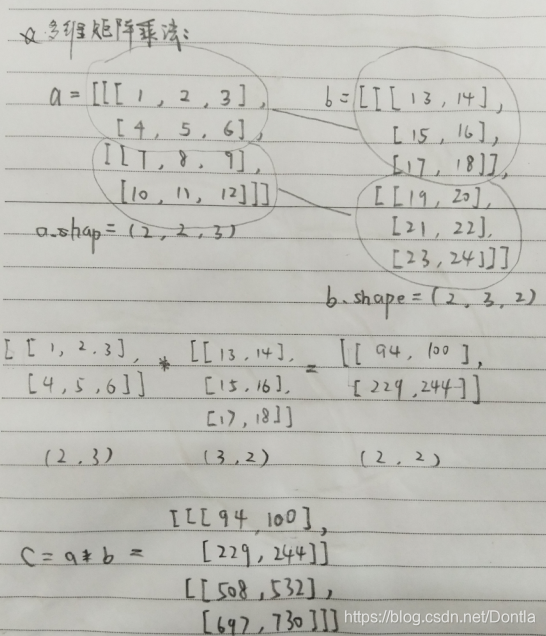 ☆ 多维矩阵乘法:
a = [[[ 1 , 2 , 3 ] ,   b = [ [ [ 13 , 14 ] ,
[ 4 , 5 , 6 ] ,   [ 15 , 16 ] ,
[ [ 7 , 8 , 9 ] ,   [ 17 , 18 ] ] ,
[10 , 11 , 12 ] ] ]   [ [ 19 , 20 ] ,
a.shap = ( 2 , 2 , 3 )   [ 21 , 22 ] ,
[ 23 , 24 ] ] ]
b.shape = ( 2 , 3 , 2 )
[ [ 1 , 2 . 3 ] , * [ [ 13 , 14 ] , = [ [ 94 , 100 ] ,
[ 4 , 5 , 6 ] ]   [ 15 , 16 ] ,   [ 229 , 244 ] ]
[ 17 , 18 ] ]
( 2 , 3 )   ( 3 , 2 )   ( 2 , 2 )
[ [ [ 94 , 100 ] ,
C = a * b =   [ 229 , 244 ] ]
[ [ 508 , 532 ] ,
[ 697 , 730 ] ] ]
https://blog.csdn.net/Dontla